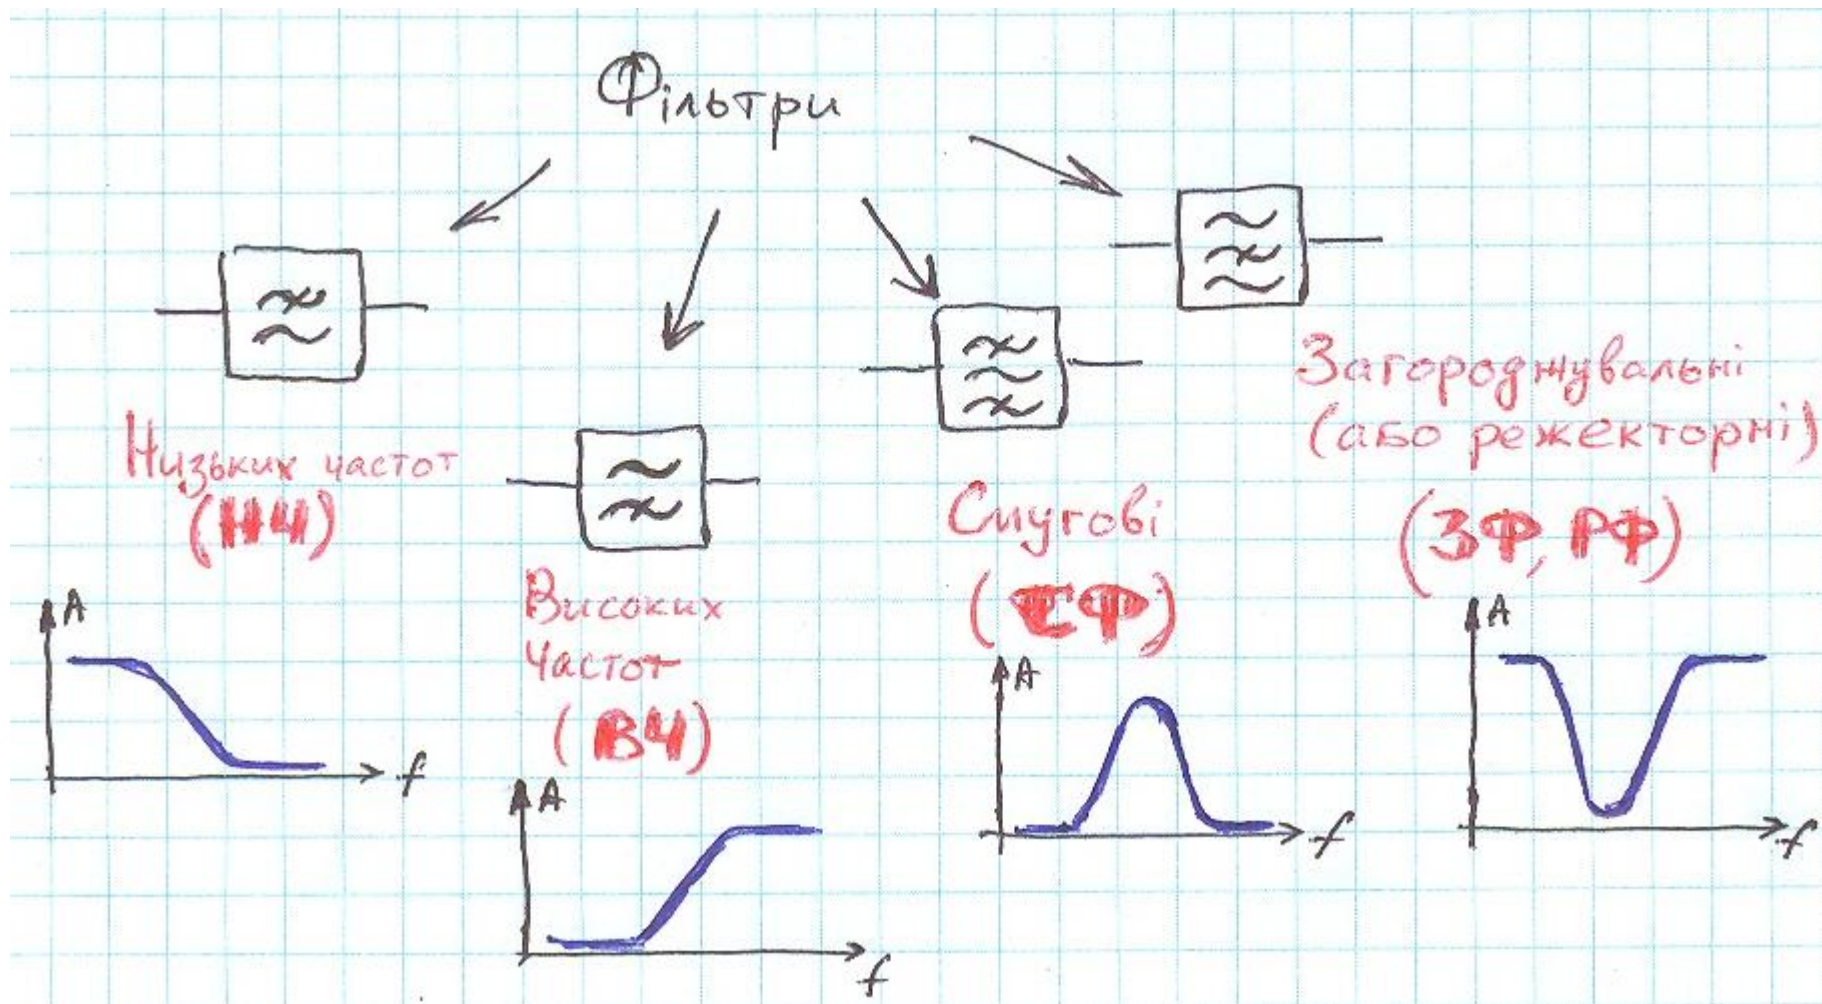 Фільтри
Низьких частот
(НЧ)
A
f
Високих
частот
(ВЧ)
A
f
Смугові
(СФ)
A
f
Загороджувальні
(або режекторні)
(ЗФ, РФ)
A
f